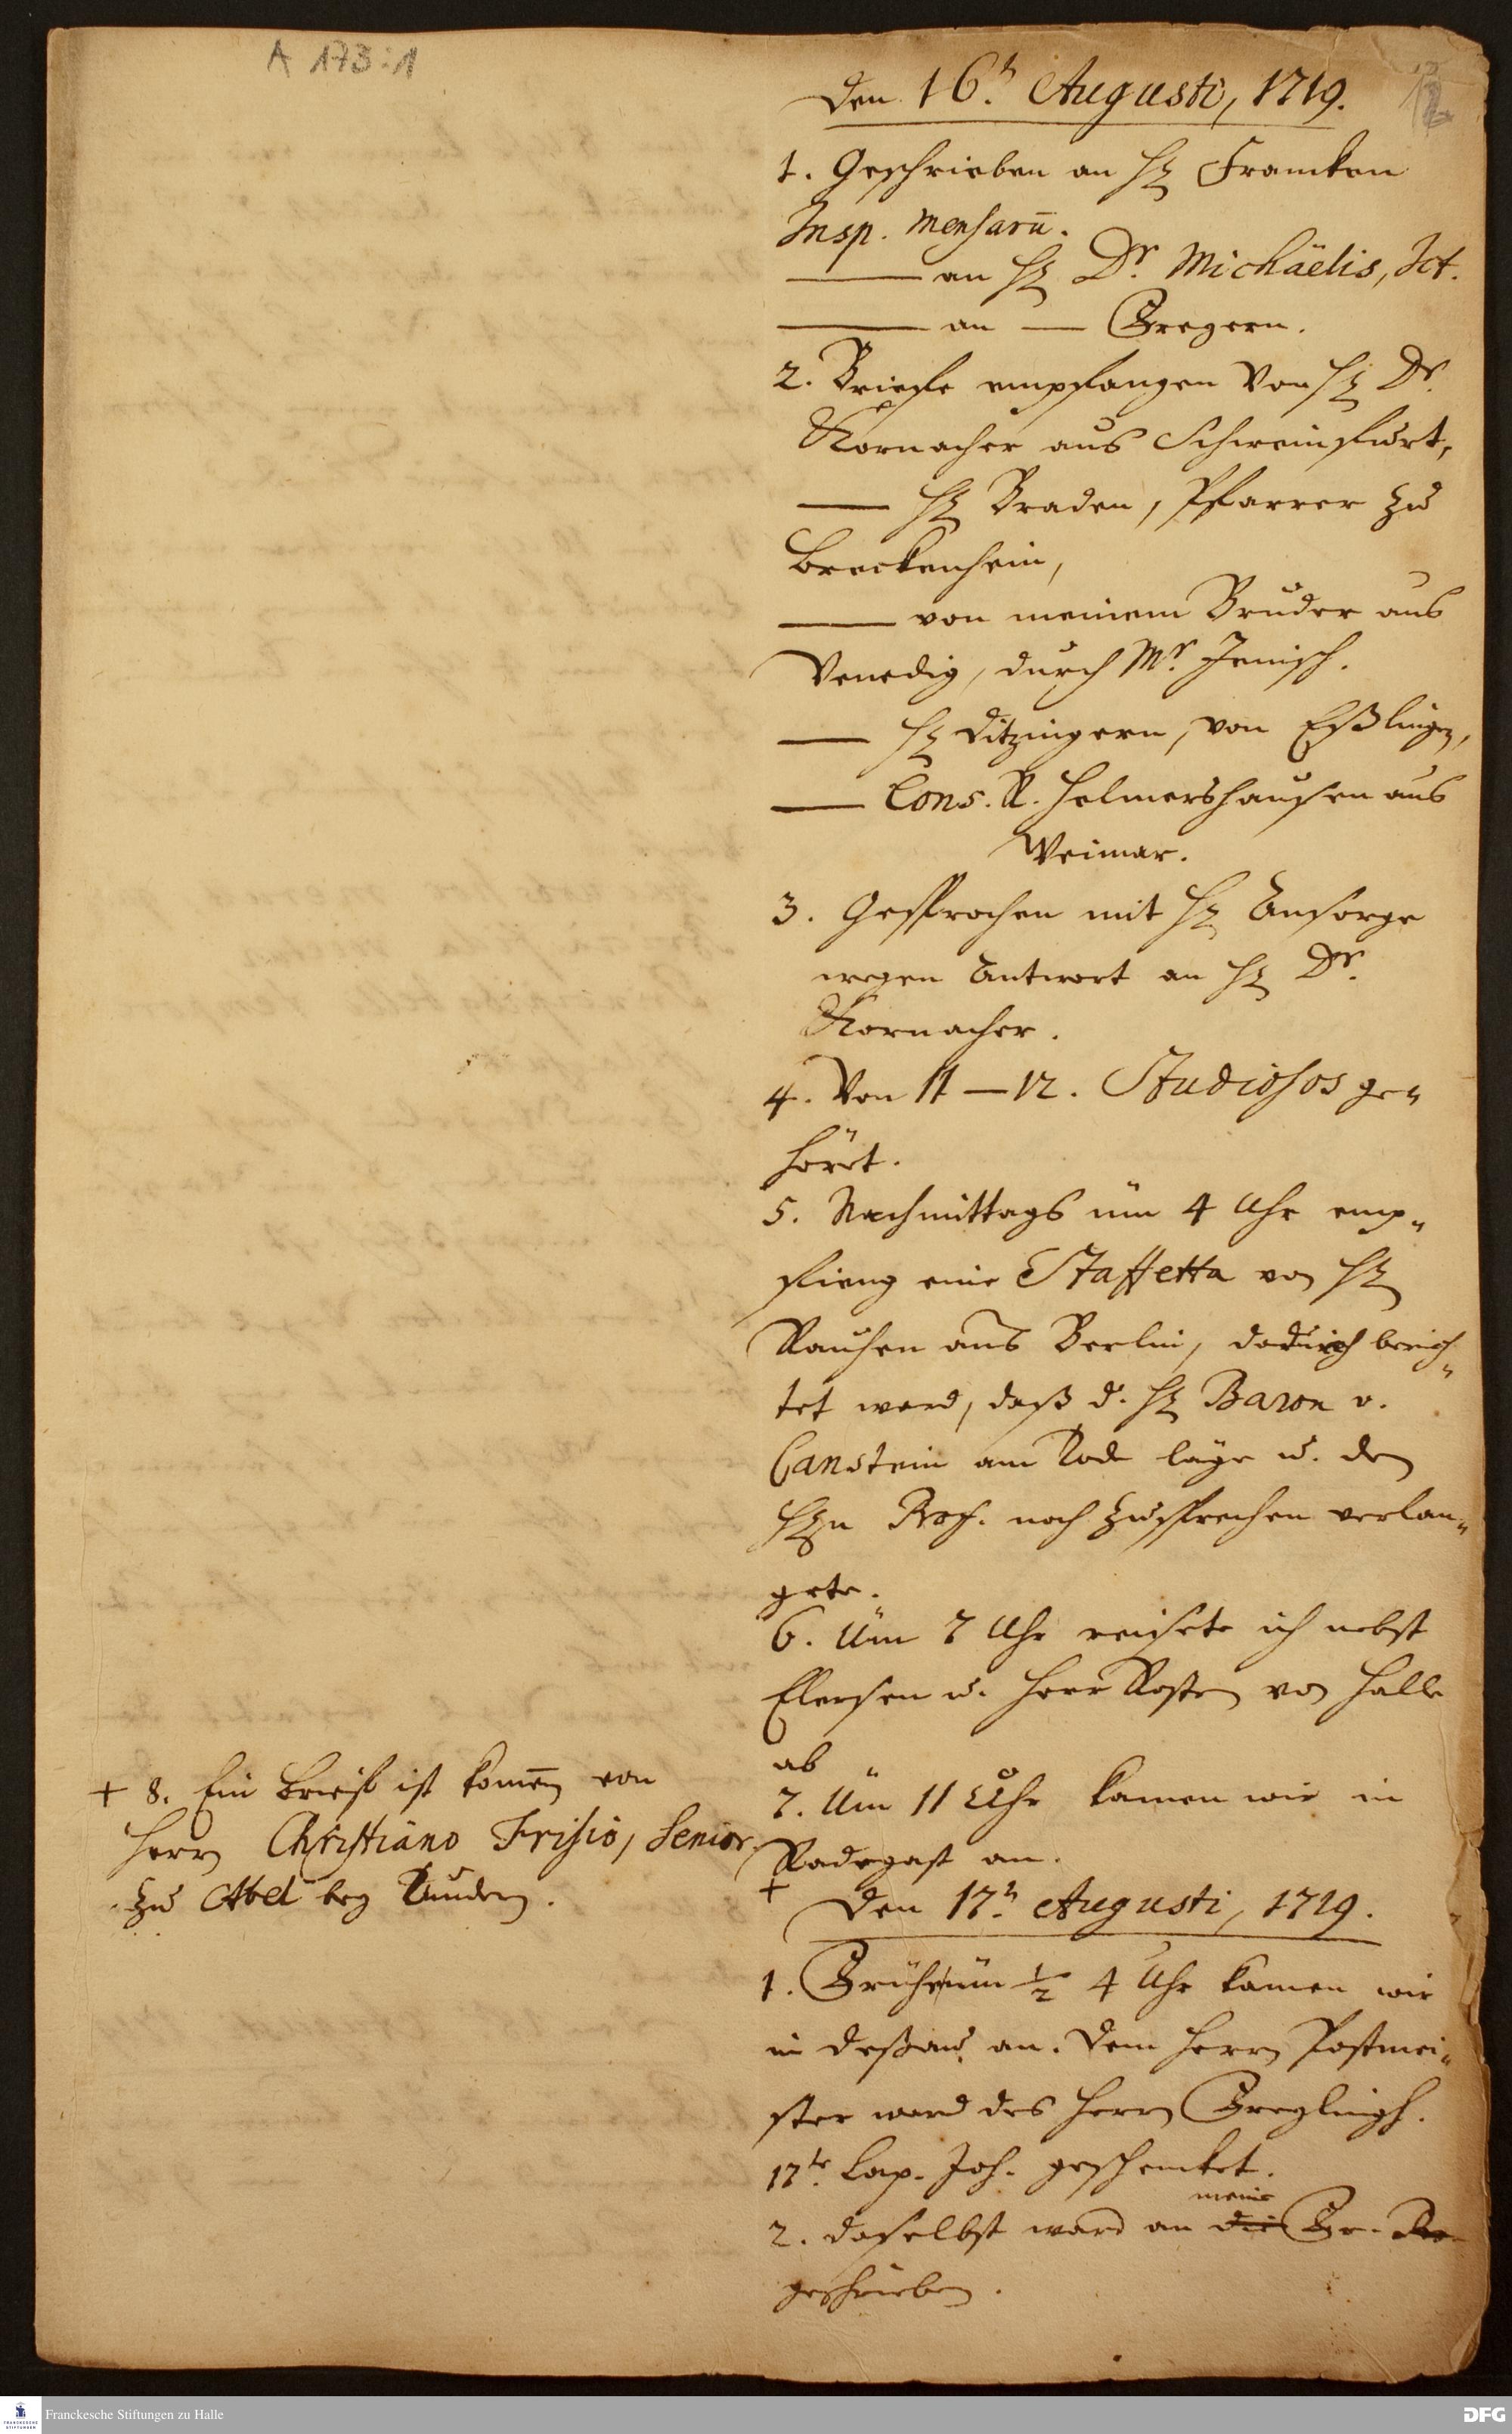 A 173:1
den 16.t Augusti, 1719.
1. Geschrieben an H. Francken
Insp. mensarū.
——— an H. Dr. Michäelis, Jct.
——— an — Gregern.
2. Briefe empfangen von H. Dr.
Kornacher aus Schweinfurt,
—— H. Braden, Pfarrer zu
Breckenheim,
—— von meinem Bruder aus
Venedig, durch Mr. Jenisch.
—— H. Ditzingern, von Eßlingen,
—— Cons. R. Helmershausen aus
Weimar.
3. Gesprochen mit H. Ansorge
wegen Antwort an H. Dr.
Kornacher.
4. Von 11—12. Studiosos ge„
höret.
5. Nachmittags um 4 Uhr emp„
fieng eine Staffetta von H.
Rauhen aus Berlin, dadurch berich„
tet ward, daß d. H. Baron v.
Canstein am Tode läge u. den
H.n Prof. noch zu sprechen verlan„
gete.
6. Um 7 Uhr reisete ich nebst
Elersen u. Herr Rosten von Halle
ab
7. Um 11 Uhr kamen wir in
Radegast an.
+
+ 8. Ein Brief ist kom̄en von
Herrn Christiano Frisio, Senior.
zu bey
Den 17.t Augusti, 1719.
1. Früh um ½ 4 Uhr kamen wir
in Deßau an. Dem Herrn Postmei„
ster ward des Herrn
17.te Cap. Joh. geschencket.
2. Daselbst ward an die meine Fr.
geschrieben.
Franckesche Stiftungen zu Halle
FRANCKESCHE STIFTUNGEN
DFG